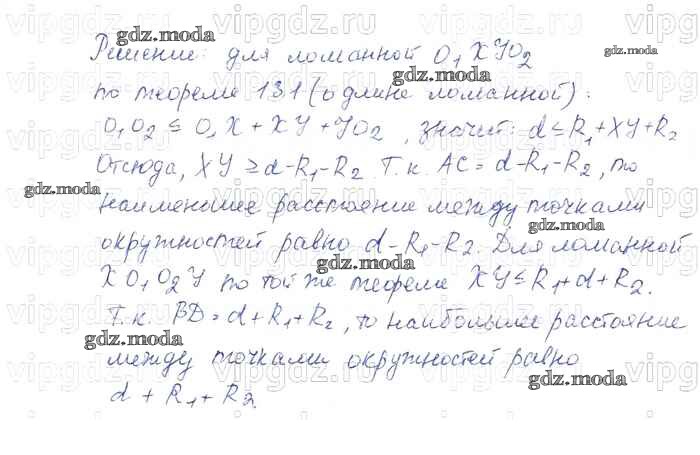 Решение: для ломанной O₁XYO₂
по теореме 13.1 (о длине ломанной):
O₁O₂ ≤ O₁X + XY + YO₂, значит: d ≤ R₁ + XY + R₂
Отсюда, XY ≥ d-R₁-R₂. Т.к. AC = d-R₁-R₂, то
наименьшее расстояние между точками
окружностей равно d-R₁-R₂. Для ломанной
XO₁O₂Y по той же теореме XY ≤ R₁+d+R₂.
Т.к. BD = d+R₁+R₂, то наибольшее расстояние
между точками окружностей равно
d + R₁ + R₂
gdz.moda
gdz.moda
gdz.moda
gdz.moda
gdz.moda
gdz.moda
gdz.moda
gdz.moda
vipgdz.ru